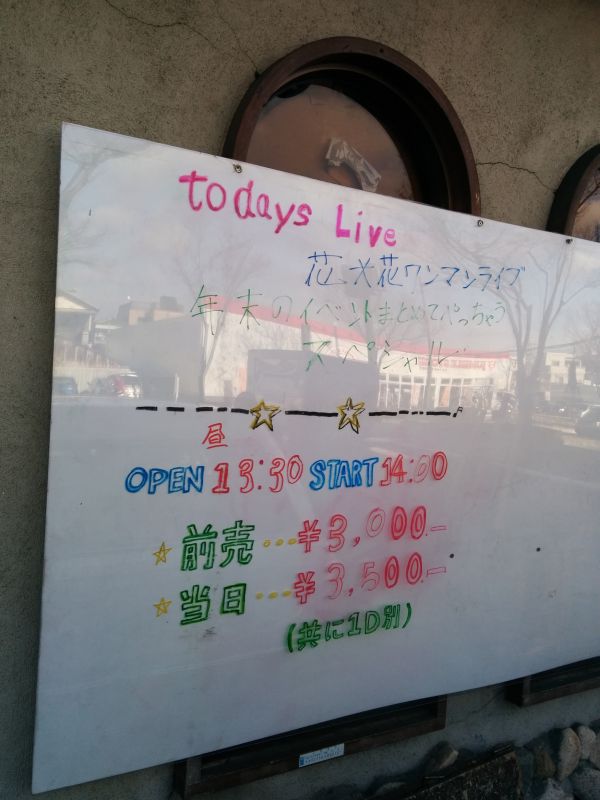 todays Live
花火花ワンマンライブ
年末のイベントまとめてやっちゃう
スペシャル
昼
OPEN 13:30 START 14:00
☆前売…¥3,000.-
☆当日…¥3,500.-
(共に1D別)